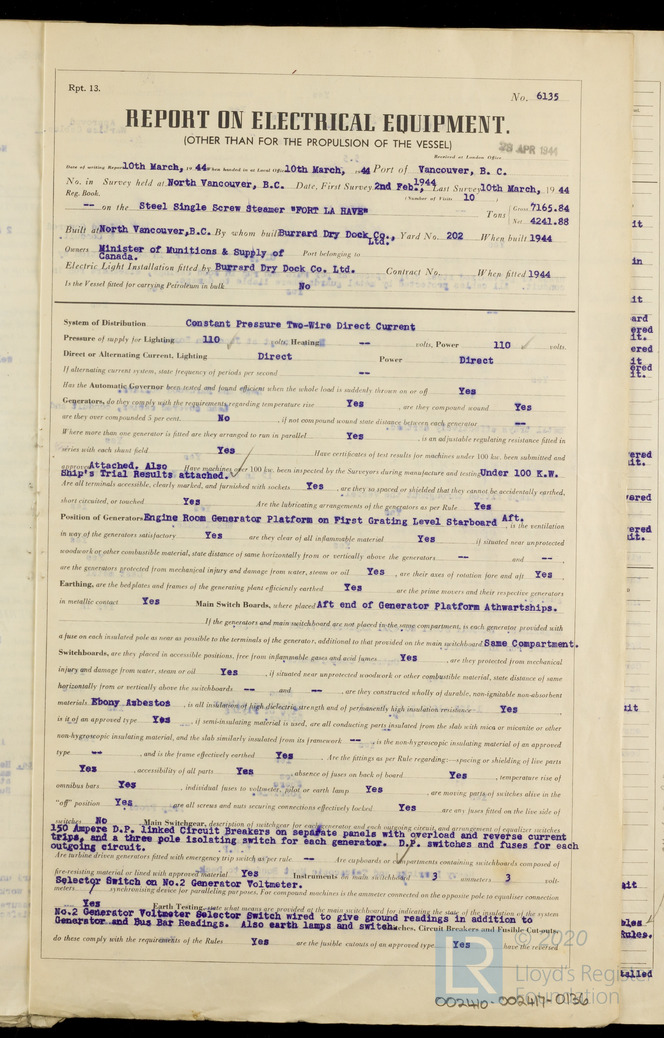 Rpt. 13.
No. 6135
REPORT ON ELECTRICAL EQUIPMENT.
(OTHER THAN FOR THE PROPULSION OF THE VESSEL)
28 APR 1944
Received at London Office
Date of writing Report 10th March, 19 44 When handed in at Local Office 10th March, 1944 Port of Vancouver, B. C.
No. in Survey held at North Vancouver, B.C. Date, First Survey 2nd Feb., 1944 Last Survey 10th March, 19 44
Reg. Book. (Number of Visits 10 )
-- on the Steel Single Screw Steamer "FORT LA HAVE" Tons Gross 7165.84 Net 4241.88
Built at North Vancouver, B.C. By whom built Burrard Dry Dock Co., Ltd. Yard No. 202 When built 1944
Owners Minister of Munitions & Supply of Canada. Port belonging to
Electric Light Installation fitted by Burrard Dry Dock Co. Ltd. Contract No. When fitted 1944
Is the Vessel fitted for carrying Petroleum in bulk No
System of Distribution Constant Pressure Two-Wire Direct Current
Pressure of supply for Lighting 110 volts, Heating -- volts, Power 110 volts.
Direct or Alternating Current, Lighting Direct Power Direct
If alternating current system, state frequency of periods per second --
Has the Automatic Governor been tested and found efficient when the whole load is suddenly thrown on or off Yes
Generators, do they comply with the requirements regarding temperature rise Yes , are they compound wound Yes
are they over compounded 5 per cent. No , if not compound wound state distance between each generator --
Where more than one generator is fitted are they arranged to run in parallel Yes , is an adjustable regulating resistance fitted in
series with each shunt field Yes Have certificates of test results for machines under 100 kw. been submitted and
approved Attached. Also Ship's Trial Results attached. Have machines over 100 kw. been inspected by the Surveyors during manufacture and testing Under 100 K.W.
Are all terminals accessible, clearly marked, and furnished with sockets Yes , are they so spaced or shielded that they cannot be accidentally earthed,
short circuited, or touched Yes Are the lubricating arrangements of the generators as per Rule Yes
Position of Generators Engine Room Generator Platform on First Grating Level Starboard Aft. , is the ventilation
in way of the generators satisfactory Yes are they clear of all inflammable material Yes , if situated near unprotected
woodwork or other combustible material, state distance of same horizontally from or vertically above the generators -- and -- ,
are the generators protected from mechanical injury and damage from water, steam or oil Yes , are their axes of rotation fore and aft Yes
Earthing, are the bedplates and frames of the generating plant efficiently earthed Yes are the prime movers and their respective generators
in metallic contact Yes Main Switch Boards, where placed Aft end of Generator Platform Athwartships.
If the generators and main switchboard are not placed in the same compartment, is each generator provided with
a fuse on each insulated pole as near as possible to the terminals of the generator, additional to that provided on the main switchboard Same Compartment.
Switchboards, are they placed in accessible positions, free from inflammable gases and acid fumes Yes , are they protected from mechanical
injury and damage from water, steam or oil Yes , if situated near unprotected woodwork or other combustible material, state distance of same
horizontally from or vertically above the switchboards -- and -- , are they constructed wholly of durable, non-ignitable non-absorbent
materials Ebony Asbestos , is all insulation of high dielectric strength and of permanently high insulation resistance Yes ,
is it of an approved type Yes , if semi-insulating material is used, are all conducting parts insulated from the slab with mica or micanite or other
non-hygroscopic insulating material, and the slab similarly insulated from its framework -- , is the non-hygroscopic insulating material of an approved
type -- , and is the frame effectively earthed Yes Are the fittings as per Rule regarding:—spacing or shielding of live parts
Yes , accessibility of all parts Yes , absence of fuses on back of board Yes , temperature rise of
omnibus bars Yes , individual fuses to voltmeter, pilot or earth lamp Yes , are moving parts of switches alive in the
"off" position Yes , are all screws and nuts securing connections effectively locked Yes are any fuses fitted on the live side of
switches No Main Switchgear, description of switchgear for each generator and each outgoing circuit, and arrangement of equalizer switches
150 Ampere D.P. linked Circuit Breakers on separate panels with overload and reverse current
trips, and a three pole isolating switch for each generator. D.P. switches and fuses for each
outgoing circuit.
Are turbine driven generators fitted with emergency trip switch as per rule -- Are cupboards or compartments containing switchboards composed of
fire-resisting material or lined with approved material Yes Instruments on main switchboard 3 ammeters 3 volt-
Selector Switch on No.2 Generator Voltmeter.
meters synchronising device for paralleling purposes. For compound machines is the ammeter connected on the opposite pole to equaliser connection
Yes Earth Testing, state what means are provided at the main switchboard for indicating the state of the insulation of the system
No.2 Generator Voltmeter Selector Switch wired to give ground readings in addition to
Generator and Bus Bar Readings. Also earth lamps and switch. Switches, Circuit Breakers and Fusible Cut-outs,
do these comply with the requirements of the Rules Yes are the fusible cutouts of an approved type Yes have the reversed
© 2020
LR
Lloyd's Register
Foundation
002410-002417-0136